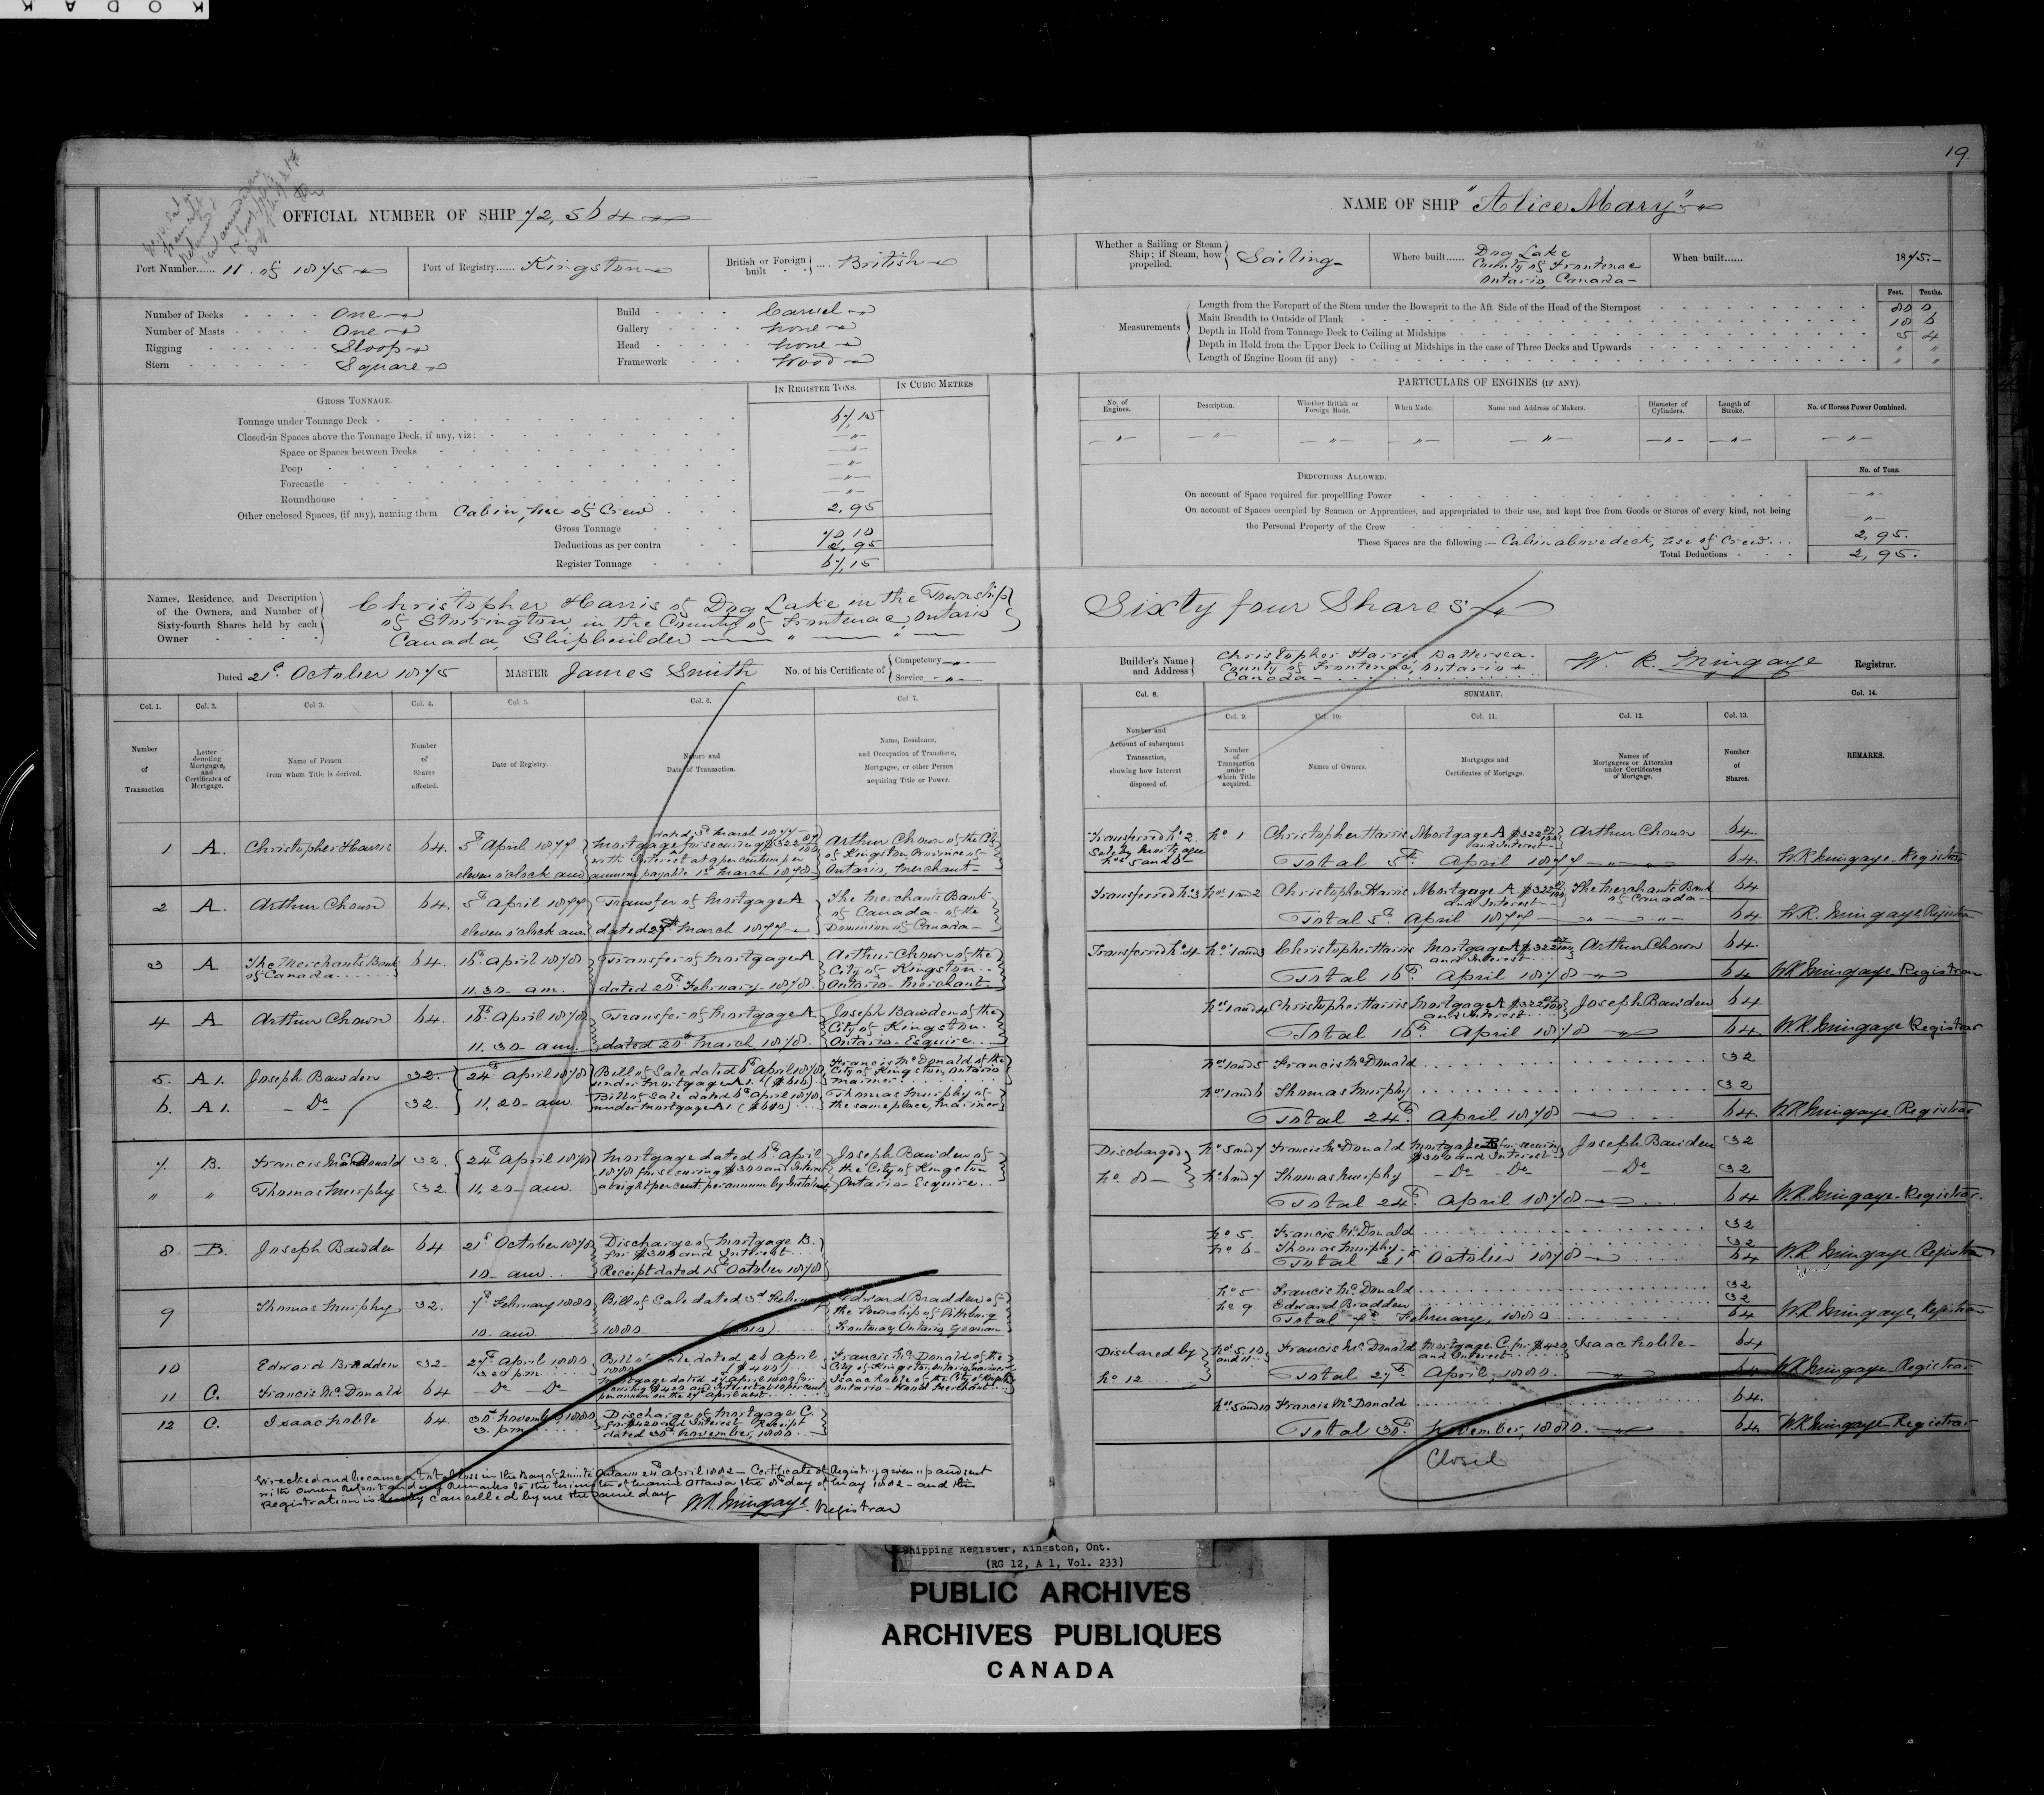 KODAK
19
OFFICIAL NUMBER OF SHIP 72,564
NAME OF SHIP "Alice Mary"
Port Number...... 11 of 1875
Port of Registry...... Kingston
British or Foreign built .... British
Whether a Sailing or Steam Ship; if Steam, how propelled. Sailing
Where built...... Dog Lake County of Frontenac Ontario, Canada
When built...... 1875
Number of Decks One
Number of Masts One
Rigging Sloop
Stern Square
Build Carvel
Gallery None
Head None
Framework Wood
Measurements
Feet. Tenths.
Length from the Forepart of the Stem under the Bowsprit to the Aft Side of the Head of the Sternpost 80 0
Main Breadth to Outside of Plank 18 6
Depth in Hold from Tonnage Deck to Ceiling at Midships 5 4
Depth in Hold from the Upper Deck to Ceiling at Midships in the case of Three Decks and Upwards " "
Length of Engine Room (if any) " "
GROSS TONNAGE.
IN REGISTER TONS.
IN CUBIC METRES
Tonnage under Tonnage Deck 67,15
Closed-in Spaces above the Tonnage Deck, if any, viz: —"—
Space or Spaces between Decks —"—
Poop —"—
Forecastle —"—
Roundhouse —"—
Other enclosed Spaces, (if any), naming them Cabin, use of Crew 2,95
Gross Tonnage 70 10
Deductions as per contra 2,95
Register Tonnage 67,15
PARTICULARS OF ENGINES (IF ANY).
No. of Engines.
Description.
Whether British or Foreign Made.
When Made.
Name and Address of Makers.
Diameter of Cylinders.
Length of Stroke.
No. of Horses Power Combined.
DEDUCTIONS ALLOWED.
No. of Tons.
On account of Space required for propelling Power —"—
On account of Spaces occupied by Seamen or Apprentices, and appropriated to their use, and kept free from Goods or Stores of every kind, not being
the Personal Property of the Crew —"—
These Spaces are the following:— Cabin above deck, use of Crew... 2,95.
Total Deductions 2,95.
Names, Residence, and Description of the Owners, and Number of Sixty-fourth Shares held by each Owner
Christopher Harris of Dog Lake in the Township
of Storrington, in the County of Frontenac, Ontario
Canada, Shipbuilder
Sixty four Shares
Dated 21st October 1875
MASTER James Smith
No. of his Certificate of Competency Service
Builder's Name and Address
Christopher Harris Battersea.
County of Frontenac, Ontario
Canada
W. R. Mingaye Registrar.
Col. 1. Col. 2. Col 3. Col. 4. Col. 5. Col. 6. Col 7.
Number of Transaction
Letter denoting Mortgages, and Certificates of Mortgage.
Name of Person from whom Title is derived.
Number of Shares affected.
Date of Registry.
Nature and Date of Transaction.
Name, Residence, and Occupation of Transferee, Mortgagee, or other Person acquiring Title or Power.
Col. 8. SUMMARY. Col. 14.
Col. 9. Col. 10. Col. 11. Col. 12. Col. 13.
Number and Account of subsequent Transaction, showing how Interest disposed of.
Number of Transaction under which Title acquired.
Names of Owners.
Mortgages and Certificates of Mortgage.
Names of Mortgagees or Attornies under Certificates of Mortgage.
Number of Shares.
REMARKS.
1 A. Christopher Harris 64. 5th April 1877 eleven o'clock am
dated 5th March 1877
Mortgage for securing $322 27/100
with Interest at 9 per centum per
annum payable 1st March 1878
Arthur Chown of the City
of Kingston, Province of
Ontario, Merchant
2 A. Arthur Chown 64. 5th April 1877 eleven o'clock am
Transfer of Mortgage A
dated 27th March 1877
The Merchants Bank
of Canada of the
Dominion of Canada
3 A The Merchants Bank of Canada 64. 16th April 1878 11.30 am.
Transfer of Mortgage A
dated 28th February 1878.
Arthur Chown of the
City of Kingston..
Ontario Merchant
4 A Arthur Chown 64. 16th April 1878 11.30 am
Transfer of Mortgage A
dated 28th March 1878.
Joseph Bawden of the
City of Kingston.
Ontario Esquire...
5. A1. Joseph Bawden 32. 24th April 1878
Bill of Sale dated 6th April 1878
under Mortgage A1.
Francis McDonald of the
City of Kingston, Ontario
Mariner
6. A1. Do 32 11,20 am
Bill of Sale dated 6th April 1878
under Mortgage A1
Thomas Murphy of
the same place, Mariner
7. B. Francis McDonald 32. 24th April 1878
" " Thomas Murphy 32 11,20 am
Mortgage dated 6th April
1878 for securing $300 and Interest
at eight per cent per annum by Instalment
Joseph Bawden of
the City of Kingston
Ontario Esquire..
8. B. Joseph Bawden 64 21st October 1878 10 am
Discharge of Mortgage B.
for $300 and Interest
Receipt dated 15th October 1878
9 Thomas Murphy 32. 7th February 1880 10 am
Bill of Sale dated 3rd February
1880
Edward Bradden of
the Township of Pittsburg
Frontenac Ontario Yeoman
10 Edward Bradden 32 27th April 1880
Bill of Sale dated 26 April
1880 ($400)
Francis McDonald of the
City of Kingston, Ontario, Mariner
11 C. Francis McDonald 64 Do Do
Mortgage dated 27 April 1880 for
securing $420 and Interest at 10 per cent
per annum on the 27 April next
Isaac Noble of the City of Kingston
Ontario Hotel Merchant
12 C. Isaac Noble 64. 30th November 1880 3. pm
Discharge of Mortgage C.
for $420 and Interest Receipt
dated 30th November, 1880
Wrecked and became a total loss in the Bay of Quinte Ontario 24th April 1882 Certificate of Registry given up and sent
with Owners Report and my Remarks to the Minister of Marine Ottawa the 8th day of May 1882 and this
Registration is hereby cancelled by me the same day
W.R. Mingaye Registrar
Transferred No 2
Sale by Mortgagee
Nos 5 and 6
No 1 Christopher Harris Mortgage A $322 27/100 and Interest Arthur Chown 64.
Total 5th April 1877 64. W R Mingaye Registrar
Transferred No 3 Nos 1 and 2 Christopher Harris Mortgage A $322 27/100 and Interest The Merchants Bank of Canada 64
Total 5th April 1877 64 W.R. Mingaye Registrar
Transferred No 4 Nos 1 and 3 Christopher Harris Mortgage A $322 27/100 and Interest Arthur Chown 64.
Total 16th April 1878 64 W R Mingaye Registrar
Nos 1 and 4 Christopher Harris Mortgage A $322 27/100 and Interest Joseph Bawden 64
Total 16th April 1878 64. W.R. Mingaye Registrar
Nos 1 and 5 Francis McDonald 32
Nos 1 and 6 Thomas Murphy 32
Total 24th April 1878 64. W R Mingaye Registrar
Discharged No. 8 Nos 5 and 7 Francis McDonald Mortgage B for securing $300 and Interest Joseph Bawden 32
Nos 6 and 7 Thomas Murphy Do Do Do 32
Total 24th April 1878 64 W.R. Mingaye Registrar.
No 5. Francis McDonald 32
No 6 Thomas Murphy 32
Total 21st October 1878 64 W.R. Mingaye Registrar
No 5 Francis McDonald 32
No 9 Edward Bradden 32
Total 7th February, 1880 64 W R Mingaye, Registrar
Discharged by No 12 Nos 5, 10 and 11 Francis McDonald Mortgage C. for $420 and Interest Isaac Noble 64
Total 27th April, 1880. 64 W R Mingaye Registrar
Nos 5 and 10 Francis McDonald 64.
Total 30th November, 1880. 64. W R Mingaye Registrar
Closed
Shipping Register, Kingston, Ont.
(RG 12, A 1, Vol. 233)
PUBLIC ARCHIVES
ARCHIVES PUBLIQUES
CANADA